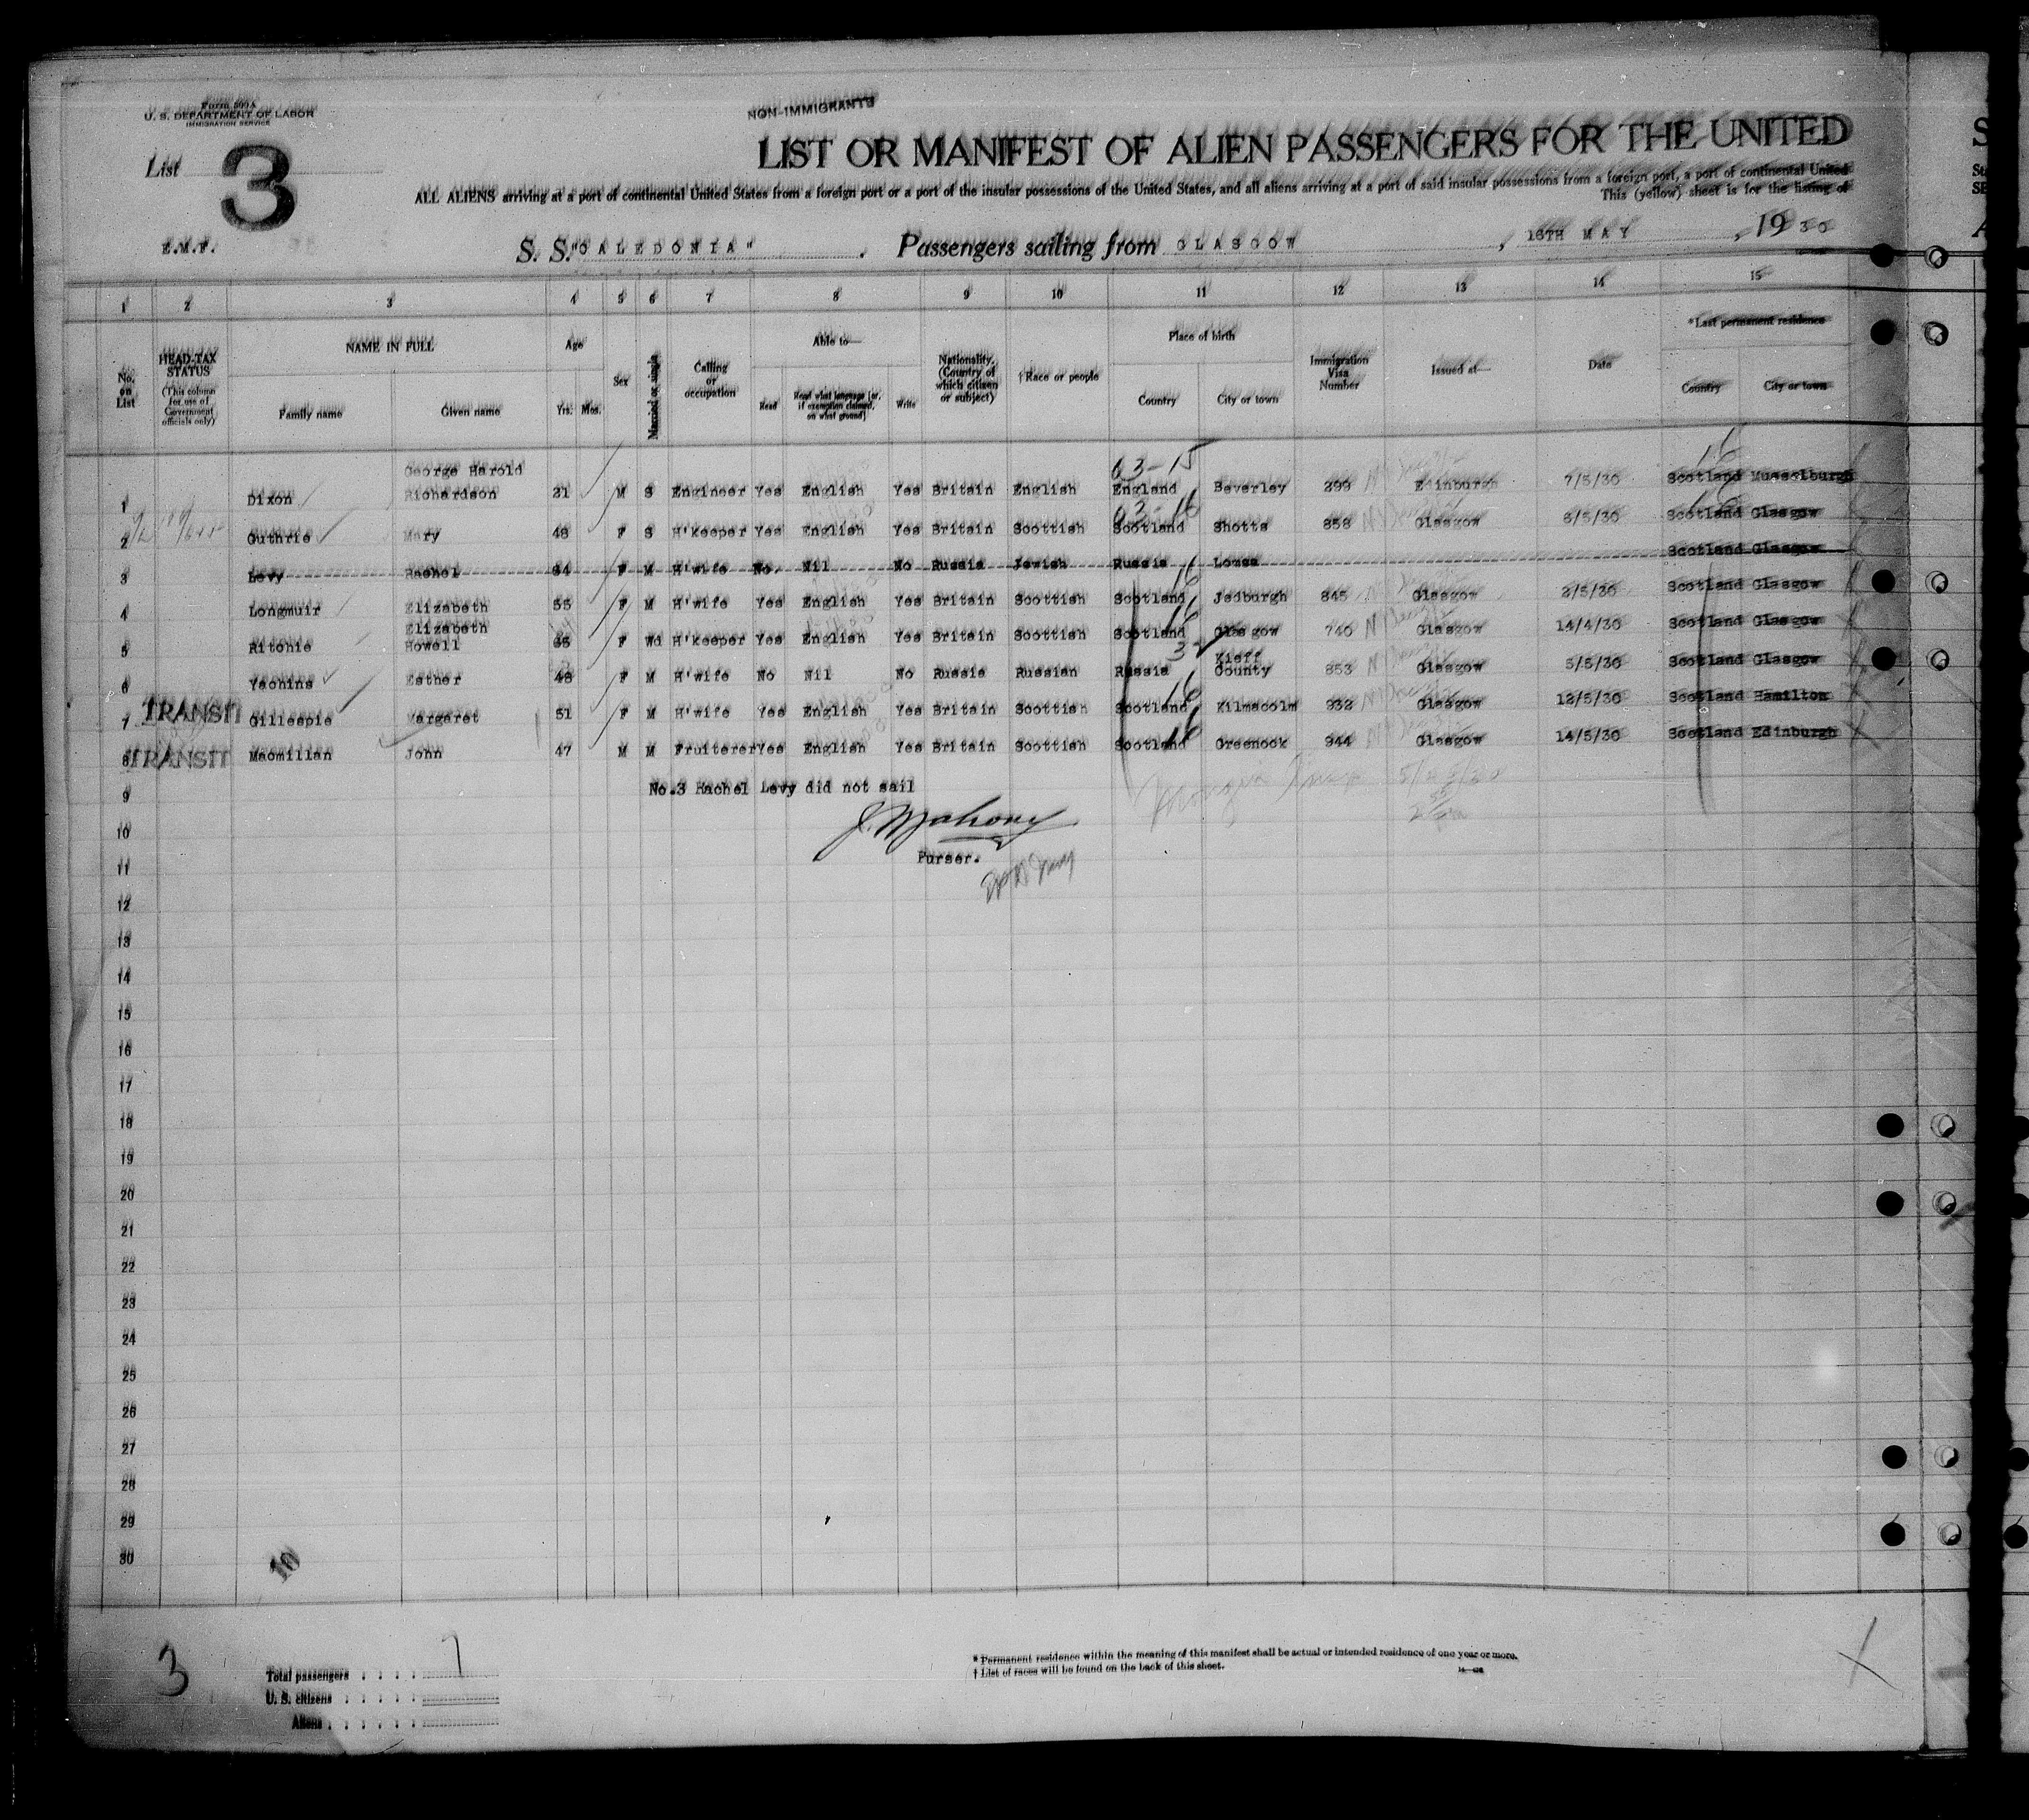 Form 500 A
U. S. DEPARTMENT OF LABOR
IMMIGRATION SERVICE
NON-IMMIGRANTS
List 3
LIST OR MANIFEST OF ALIEN PASSENGERS FOR THE UNITED
ALL ALIENS arriving at a port of continental United States from a foreign port or a port of the insular possessions of the United States, and all aliens arriving at a port of said insular possessions from a foreign port, a port of continental United
This (yellow) sheet is for the listing of
E.M.F.
S. S. "CALEDONIA". Passengers sailing from GLASGOW, 16TH MAY, 1930
1 2 3 4 5 6 7 8 9 10 11 12 13 14 15
No. on List
HEAD-TAX STATUS (This column for use of Government officials only)
NAME IN FULL
Family name
Given name
Age
Yrs. Mos.
Sex
Married or single
Calling or occupation
Able to—
Read
Read what language [or, if exemption claimed, on what ground]
Write
Nationality. (Country of which citizen or subject)
† Race or people
Place of birth
Country
City or town
Immigration Visa Number
Issued at—
Date
* Last permanent residence
Country
City or town
63-15
16
1 Dixon George Harold Richardson 21 M S Engineer Yes English Yes Britain English England Beverley 299 Edinburgh 7/5/30 Scotland Musselburgh
63-16
16
2 Guthrie Mary 48 F S H'keeper Yes English Yes Britain Scottish Scotland Shotts 858 Glasgow 6/5/30 Scotland Glasgow
3 Levy Rachel 34 F M H'wife No. Nil No Russia Jewish Russia Lomsa Scotland Glasgow
16
4 Longmuir Elizabeth 55 F M H'wife Yes English Yes Britain Scottish Scotland Jedburgh 845 Glasgow 2/5/30 Scotland Glasgow
16
5 Ritchie Elizabeth Howell 65 F Wd H'keeper Yes English Yes Britain Scottish Scotland Glasgow 740 Glasgow 14/4/30 Scotland Glasgow
6 Yachins Esther 48 F M H'wife No Nil No Russia Russian Russia Kieff County 853 Glasgow 5/5/30 Scotland Glasgow
16
7 TRANSIT Gillespie Margaret 51 F M H'wife Yes English Yes Britain Scottish Scotland Kilmacolm 932 Glasgow 12/5/30 Scotland Hamilton
16
8 TRANSIT Macmillan John 47 M M Fruiterer Yes English Yes Britain Scottish Scotland Greenock 944 Glasgow 14/5/30 Scotland Edinburgh
9 No.3 Rachel Levy did not sail
10 J. Mahony
11 Purser.
12
13
14
15
16
17
18
19
20
21
22
23
24
25
26
27
28
29
30
10
3
Total passengers 7
U. S. citizens
Aliens
* Permanent residence within the meaning of this manifest shall be actual or intended residence of one year or more.
† List of races will be found on the back of this sheet.